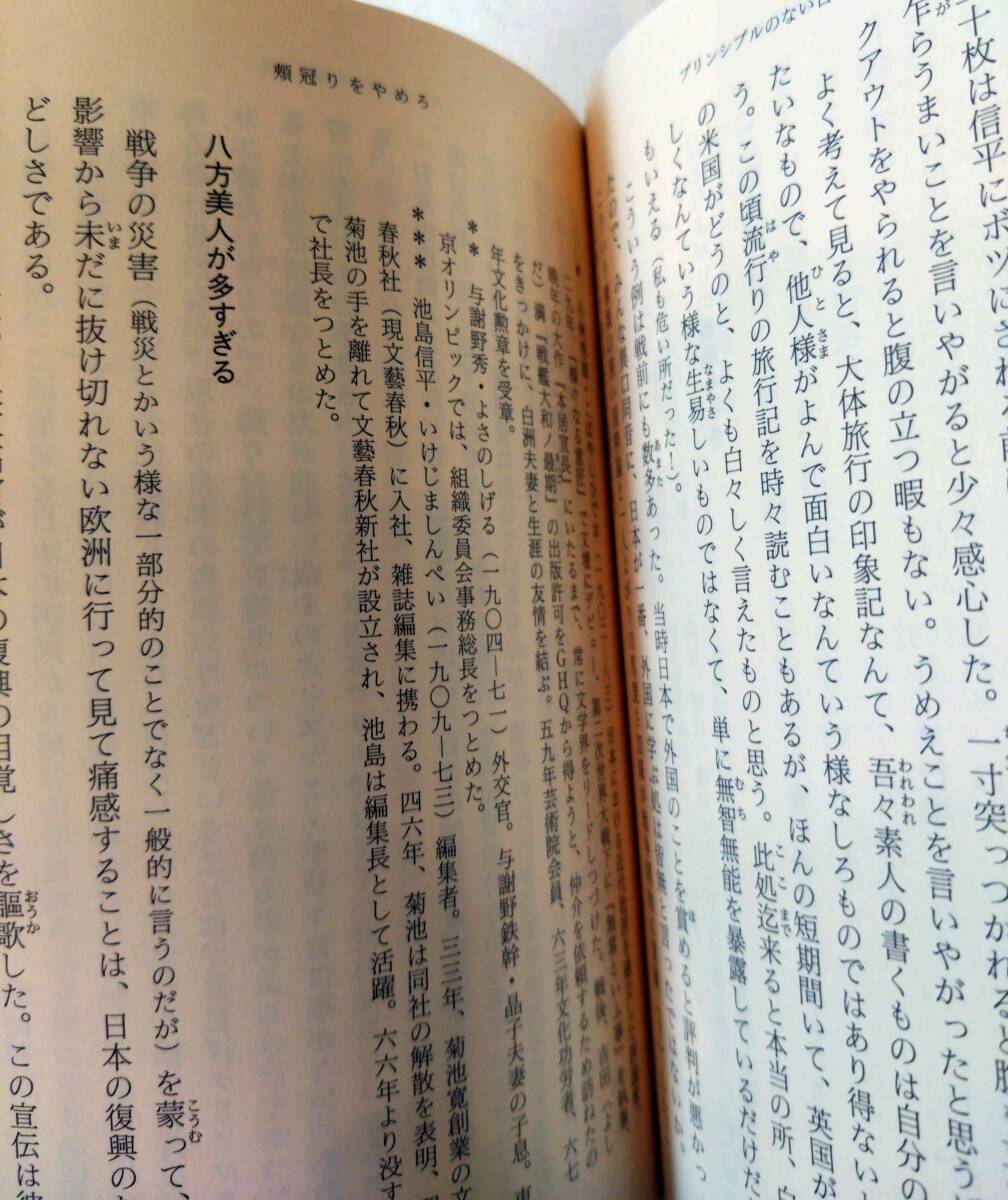 プリンシプルのない日
十枚は信平にボツにされ
乍らうまいことを言いやがると少々感心した。一寸突っつかれると
クアウトをやられると腹の立つ暇もない。うめえことを言いやがったと思う
よく考えて見ると、大体旅行の印象記なんて、吾々素人の書くものは自分の
たいなもので、他人様がよんで面白いなんていう様なしろものではあり得ない
う。この頃流行りの旅行記を時々読むこともあるが、ほんの短期間いて、英国が
の米国がどうのと、よくも白々しく言えたものと思う。此処迄来ると本当の所、
しくなんていう様な生易しいものではなくて、単に無智無能を暴露しているだけだ
もいえる（私も危い所だった！）。
こういう例は戦前にも数多あった。当時日本で外国のことを賞めると評判が悪かっ
たので、みんな異口同音に、日本が一番、外国に学ぶ処は皆無と言ったではないか。
頰冠りをやめろ
晩年の大作『本居宣長』にいたるまで、常に文学界をリードしつづけた。戦後、吉田（よし
だ）満『戦艦大和ノ最期』の出版許可をGHQから得ようと、仲介を依頼するため訪ねたの
をきっかけに、白洲夫妻と生涯の友情を結ぶ。五九年芸術院会員、六三年文化功労者、六七
年文化勲章を受章。
** 与謝野秀・よさのしげる（一九〇四―七一）外交官。与謝野鉄幹・晶子夫妻の子息。東
京オリンピックでは、組織委員会事務総長をつとめた。
*** 池島信平・いけじましんぺい（一九〇九―七三）編集者。三三年、菊池寛創業の文
春秋社（現文藝春秋）に入社、雑誌編集に携わる。四六年、菊池は同社の解散を表明、
菊池の手を離れて文藝春秋新社が設立され、池島は編集長として活躍。六六年より没す
で社長をつとめた。
八方美人が多すぎる
戦争の災害（戦災とかいう様な一部分的のことでなく一般的に言うのだが）を蒙って、
影響から未だに抜け切れない欧洲に行って見て痛感することは、日本の復興の
どしさである。
の復興の目覚しさを謳歌した。この宣伝は